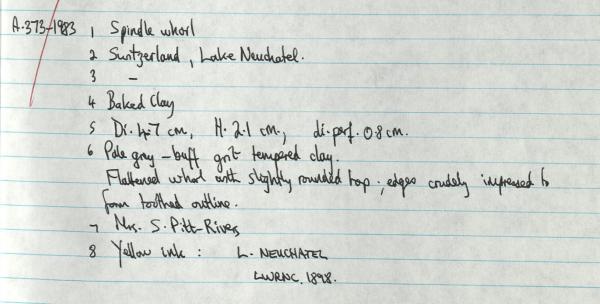 A.373-1983 1 Spindle whorl
2 Switzerland, Lake Neuchatel.
3 –
4 Baked Clay
5 Di. 4.7 cm, H. 2.1 cm., di. perf. 0.8 cm.
6 Pale grey – buff grit tempered clay.
Flattened whorl with slightly rounded top; edges crudely impressed to
form toothed outline.
7 Mrs. S. Pitt-Rivers
8 Yellow ink: L. NEUCHATEL
1898.